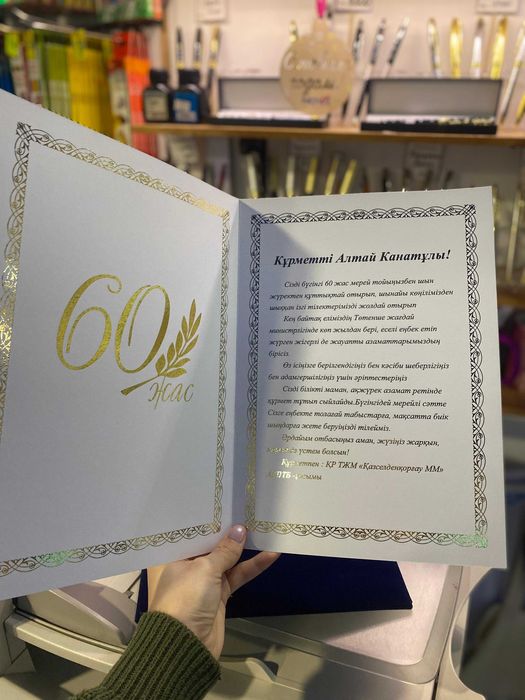 60
жас
Құрметті Алтай Канатұлы!
Сізді бүгінгі 60 жас мерей тойыңызбен шын
жүректен құттықтай отырып, шынайы көңілімізден
шыққан ізгі тілектерімізді жолдай отырып
Кең байтақ еліміздің Төтенше жағдай
министрлігінде көп жылдан бері, еселі еңбек етіп
жүрген жігерлі де жауапты азаматтарымыздың
бірісіз.
Өз ісіңізге берілгендігіңіз бен кәсіби шеберлігіңіз
бен адамгершілігіңіз үшін әріптестеріңіз
Сізді білікті маман, ақжүрек азамат ретінде
құрмет тұтып сыйлайды.Бүгінгідей мерейлі сәтте
Сізге еңбекте толағай табыстарға, мақсатта биік
шыңдарға жете беруіңізді тілейміз.
Әрдайым отбасыңыз аман, жүзіңіз жарқын,
үстем болсын!
Құрметпен : ҚР ТЖМ «Қазселденқорғау ММ»